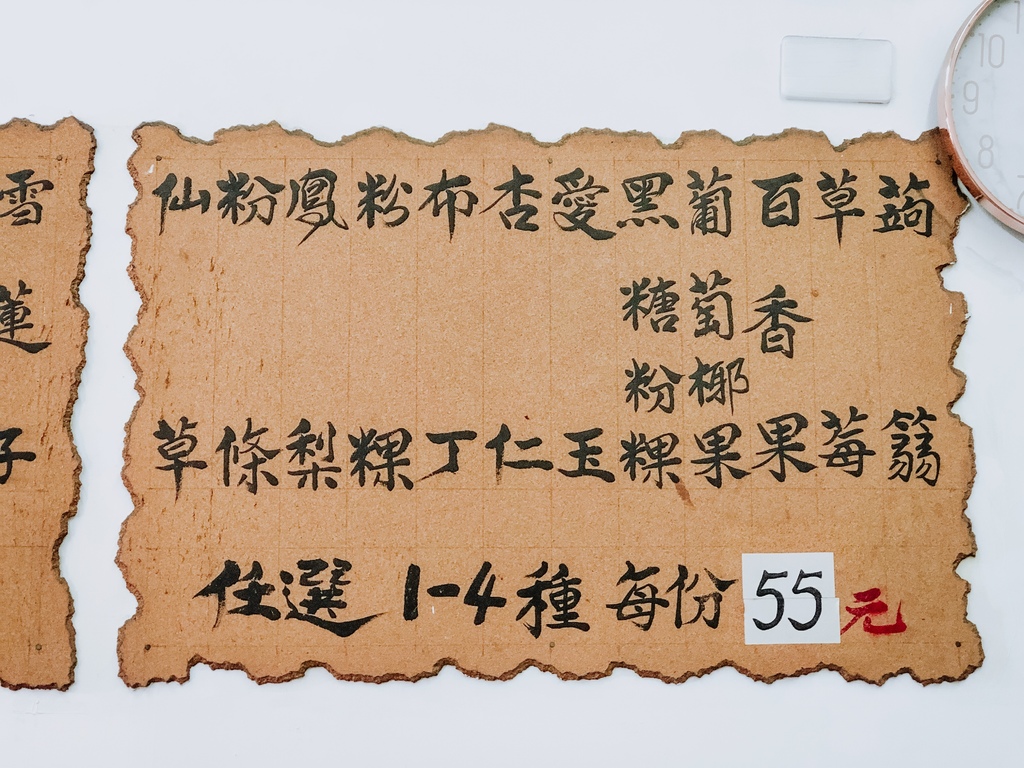 蒟蒻
草莓
百香果
葡萄椰果
黑糖粉粿
愛玉
杏仁
布丁
粉粿
鳳梨
粉條
仙草
任選1-4種 每份55元
雪蓮子
10
9
8